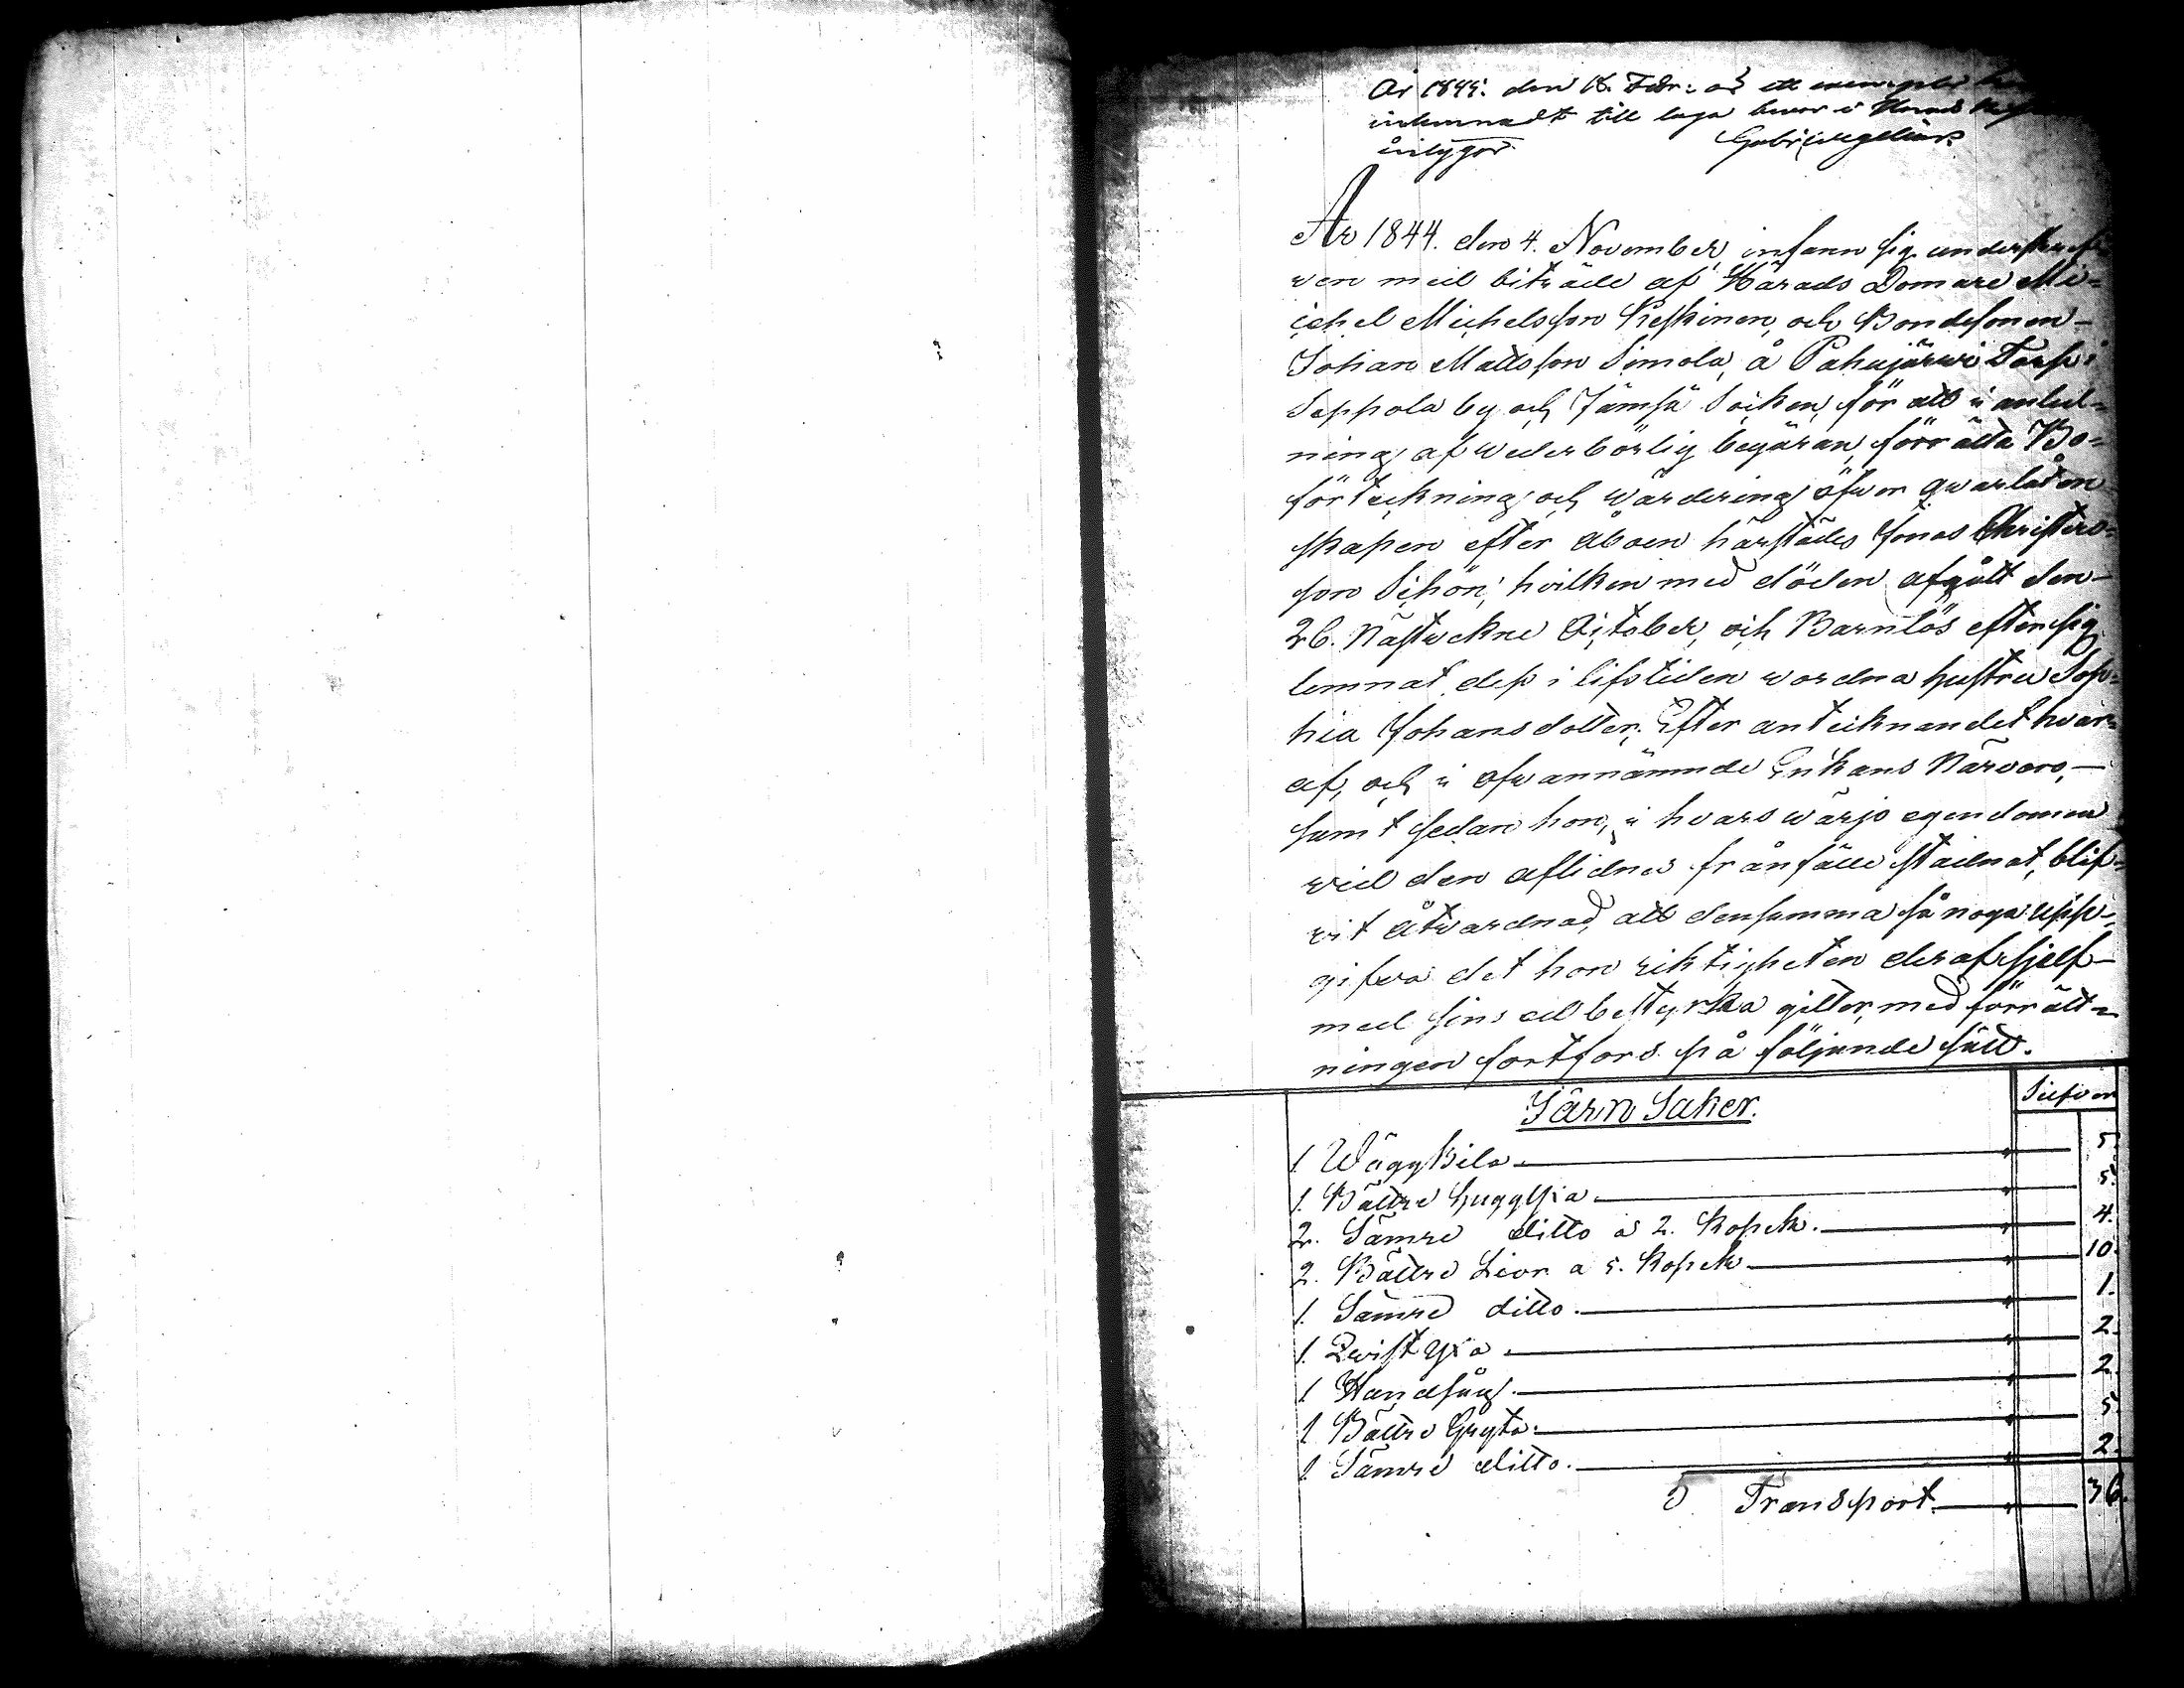 År 1845. den 18. Febr: är ett exemplar
inlemnadt till laga
intygar. Gabr:
År 1844. den 4. November, infann sig underskref-
wen med biträde af Härads Domare Mi-
ichel Michelsson Keskinen, och Bondesonen
Johan Mattsson Simola, å Pahajärwi Torp i
Seppola by och Jämsä Socken, för att i anled-
ning af wederbörlig begäran, förrätta Bo-
förteckning och wärdering öfwer qwarlåten
skapen efter åboen härstädes Jonas Christers-
son Schön, hvilken med döden afgått den
26. Nästwekne October, och Barnlös efter sig
lemnat, dess i lifstiden wordna hustru Sop-
hia Johansdotter; Efter antecknandet hvar-
af, och i ofwannämnde Enkans Närvaro,
samt sedan hon, i hvars wärjo egendomen
wid den aflidnes frånfälle stadnat, blif-
wit åtwarnad, att densamma så noga upp-
gifwa det hon riktigheten deraf sjelf
med sin ed bestyrka gitter, med förrätt-
ningen fortfors på följande sätt.
Järn Saker. Silfwer
1 Wäggkila " 5.
1. Bättre huggyxa " 5.
2. Sämre ditto a 2. Kopek. " 4.
2. Bättre Lior a 5. Kopek " 10.
1. Sämre ditto. " 1.
1. Qwistyxa " 2.
1 Handsåg. " 2.
1 Bättre Gryta. " 5.
1 Sämre ditto. " 2.
Transport " 36.